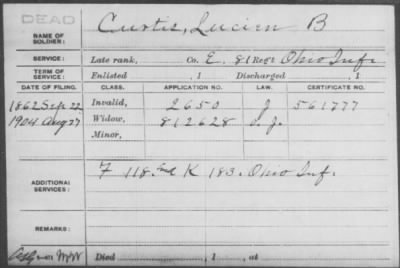 DEAD
NAME OF SOLDIER: Curtis, Lucien B
SERVICE: Late rank, Co. E, 81 Reg't Ohio Inf.
TERM OF SERVICE: Enlisted , 1 Discharged , 1
DATE OF FILING. CLASS. APPLICATION NO. LAW. CERTIFICATE NO.
1862 Sep 22 Invalid, 2650 J 561777
1904 Aug 27 Widow, 812628 O. J.
Minor,
ADDITIONAL SERVICES: F 118 Ind K 183. Ohio Inf.
REMARKS:
Died , 1 , at